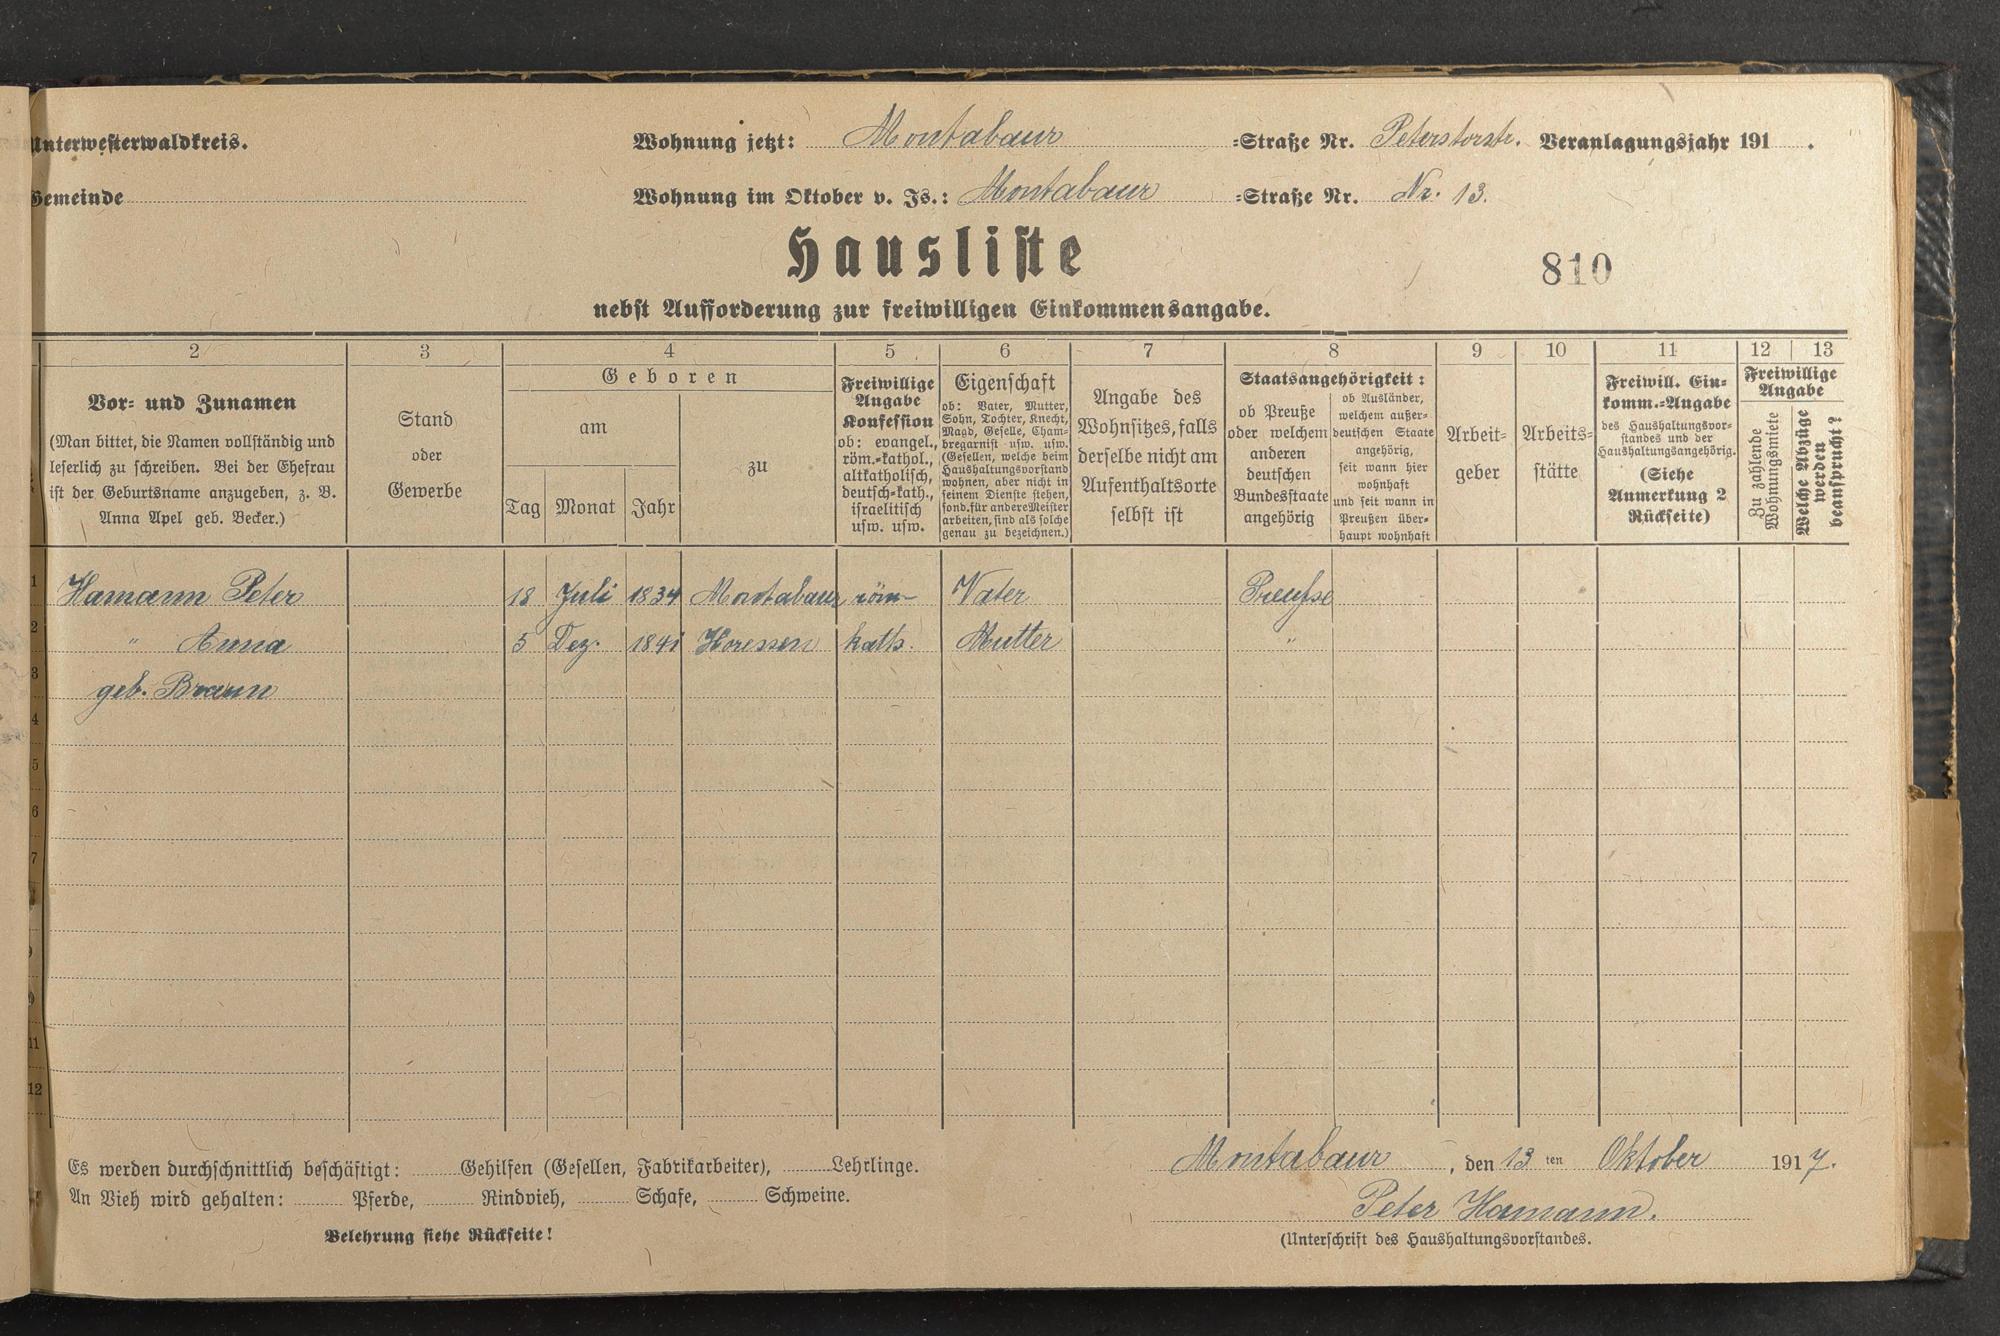 Unterwesterwaldkreis. Wohnung jetzt: Montabaur =Straße Nr. Peterstorstr. Veranlagungsjahr 191 .
Gemeinde Wohnung im Oktober v. Js.: Montabaur =Straße Nr. Nr. 13.
Hausliste
810
nebst Aufforderung zur freiwilligen Einkommensangabe.
2 3 4 5 6 7 8 9 10 11 12 13
Vor= und Zunamen
(Man bittet, die Namen vollständig und
leserlich zu schreiben. Bei der Ehefrau
ist der Geburtsname anzugeben, z. B.
Anna Apel geb. Becker.)
Stand
oder
Gewerbe
Geboren
am
Tag Monat Jahr
zu
Freiwillige
Angabe
Konfession
ob: evangel.,
röm.=kathol.,
altkatholisch,
deutsch=kath.,
israelitisch
usw. usw.
Eigenschaft
ob: Vater, Mutter,
Sohn, Tochter, Knecht,
Magd, Geselle, Cham=
bregarnist usw. usw.
(Gesellen, welche beim
Haushaltungsvorstand
wohnen, aber nicht in
seinem Dienste stehen,
sond. für andere Meister
arbeiten, sind als solche
genau zu bezeichnen.)
Angabe des
Wohnsitzes, falls
derselbe nicht am
Aufenthaltsorte
selbst ist
Staatsangehörigkeit:
ob Preuße
oder welchem
anderen
deutschen
Bundesstaate
angehörig
ob Ausländer,
welchem außer=
deutschen Staate
angehörig,
seit wann hier
wohnhaft
und seit wann in
Preußen über=
haupt wohnhaft
Arbeit=
geber
Arbeits=
stätte
Freiwill. Ein=
komm.=Angabe
des Haushaltungsvor=
standes und der
Haushaltungsangehörig.
(Siehe
Anmerkung 2
Rückseite)
Freiwillige
Angabe
Zu zahlende
Wohnungsmiete
Welche Abzüge
werden
beansprucht?
1 Hamann Peter 18 Juli 1834 Montabaur röm- Vater Preußse
2 " Anna 5 Dez. 1841 Horessen kath. Mutter "
3 geb. Braun
4
5
6
7
9
11
12
Es werden durchschnittlich beschäftigt: Gehilfen (Gesellen, Fabrikarbeiter), Lehrlinge.
An Vieh wird gehalten: Pferde, Rindvieh, Schafe, Schweine.
Belehrung siehe Rückseite!
Montabaur , den 13 ten Oktober 1917.
Peter Hamann.
(Unterschrift des Haushaltungsvorstandes.